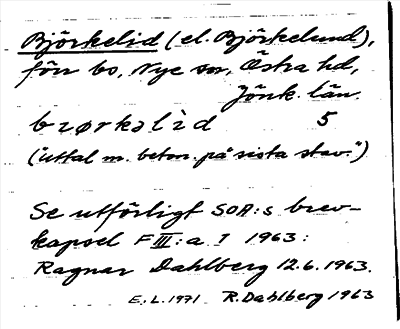 Björkelid (el. Björkelund),
förr bs, Nye sn, Östra hd,
Jönk. län.
bɪørkəlìd 5
("uttal m. beton. på sista stav.")
Se utförligt SOA:s brev-
kapsel F III:a 1 1963:
Ragnar Dahlberg 12.6.1963.
E.L. 1971 R. Dahlberg 1963